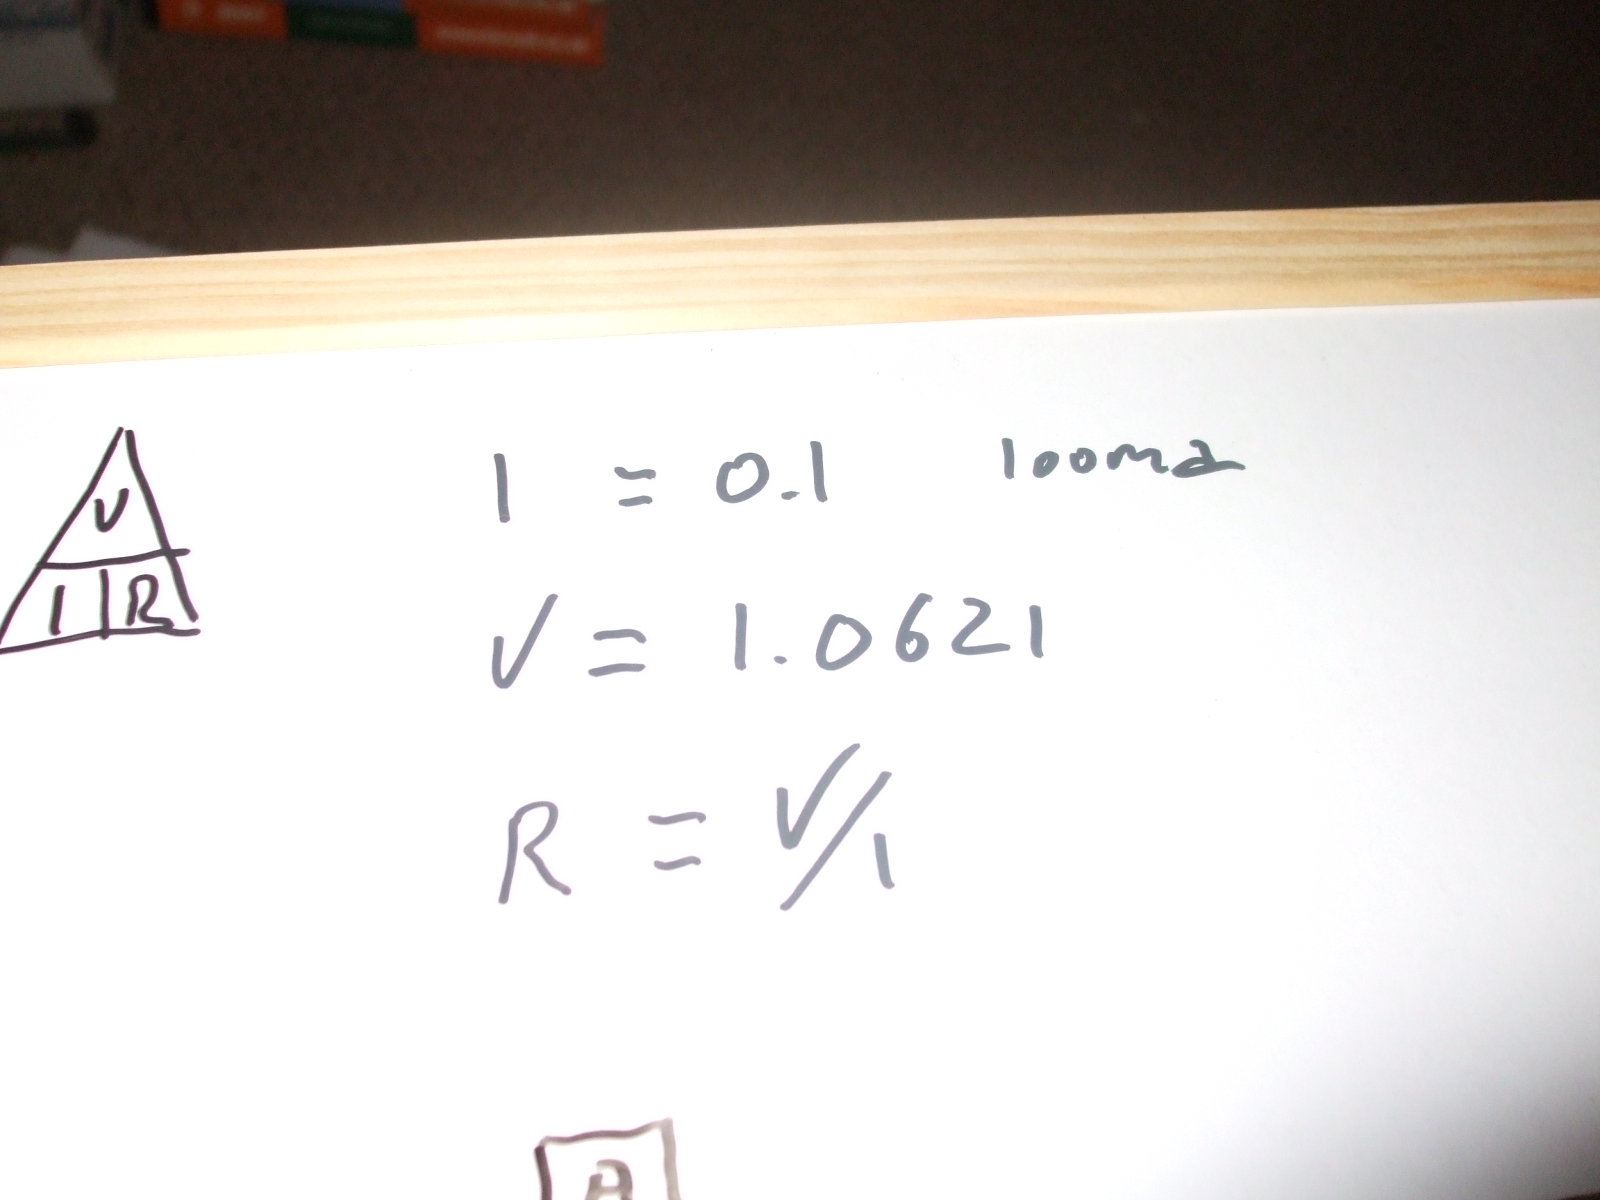 V
I R
I = 0.1 100ma
V = 1.0621
R = V/I